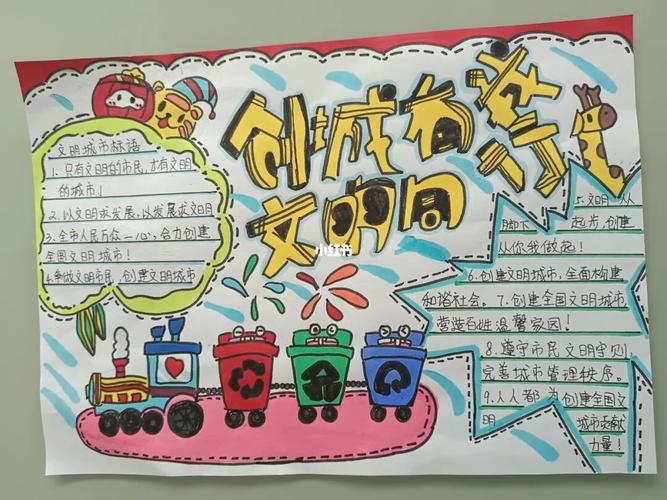 创城有我
文明同行
小红书
文明城市标语
1.只有文明的市民,才有文明
的城市!
2.以文明求发展,以发展求文明
3.全市人民万众一心,合力创建
全国文明城市!
4.争做文明市民,创建文明城市
5.文明 从
脚下 起步,创建
从你我做起!
6.创建文明城市,全面构建
和谐社会。7.创建全国文明城市,
营造百姓温馨家园!
8.遵守市民文明守则
完善城市管理秩序。
9.人人都为创建全国文
明 城市贡献
力量!